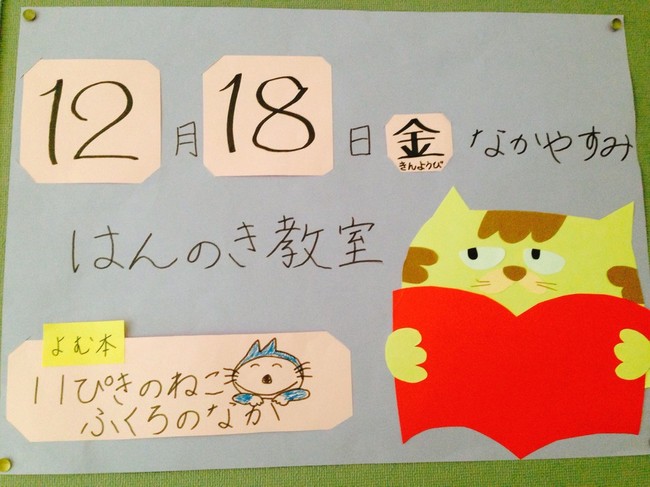 12月18日 金 なかやすみ
きんようび
はんのき教室
よむ本
11ぴきのねこ
ふくろのなか